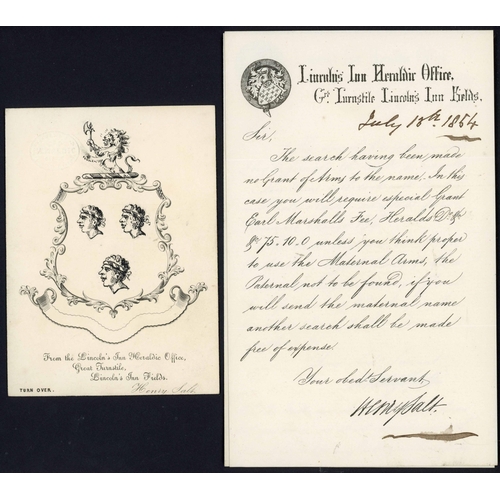 From the Lincoln's Inn Heraldic Office,
Great Turnstile,
Lincoln's Inn Fields.
TURN OVER.
Henry Salt,
Lincoln's Inn Heraldic Office,
Gt. Turnstile Lincoln's Inn Fields.
July 13th 1854
Sir,
The search having been made
no Grant of Arms to the name, In this
case you will require especial Grant
Earl Marshalls Fee, Heralds Do &c
&c 75.10.0 unless you think proper
to use the Maternal Arms, the
Paternal not to be found, if you
will send the maternal name
another search shall be made
free of expense.
Your obedt. Servant
Henry Salt.